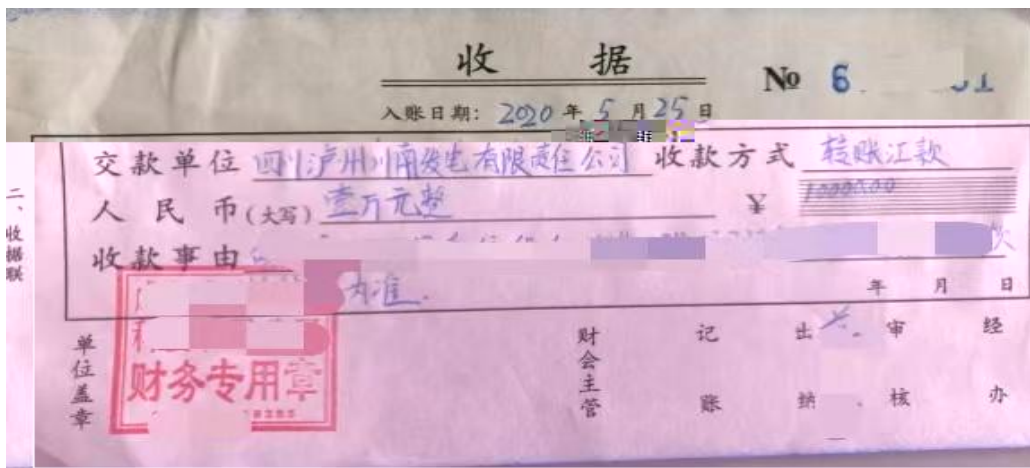 收 据
№ 6
入账日期：2020年5月25日
交款单位 四川泸州川南发电有限责任公司 收款方式 转账汇款
人民币(大写) 壹万元整 ¥ 10000.00
收款事由
为准.
年 月 日
二、收据联
单位盖章
财务专用章
财会主管
记账
出纳
审核
经办